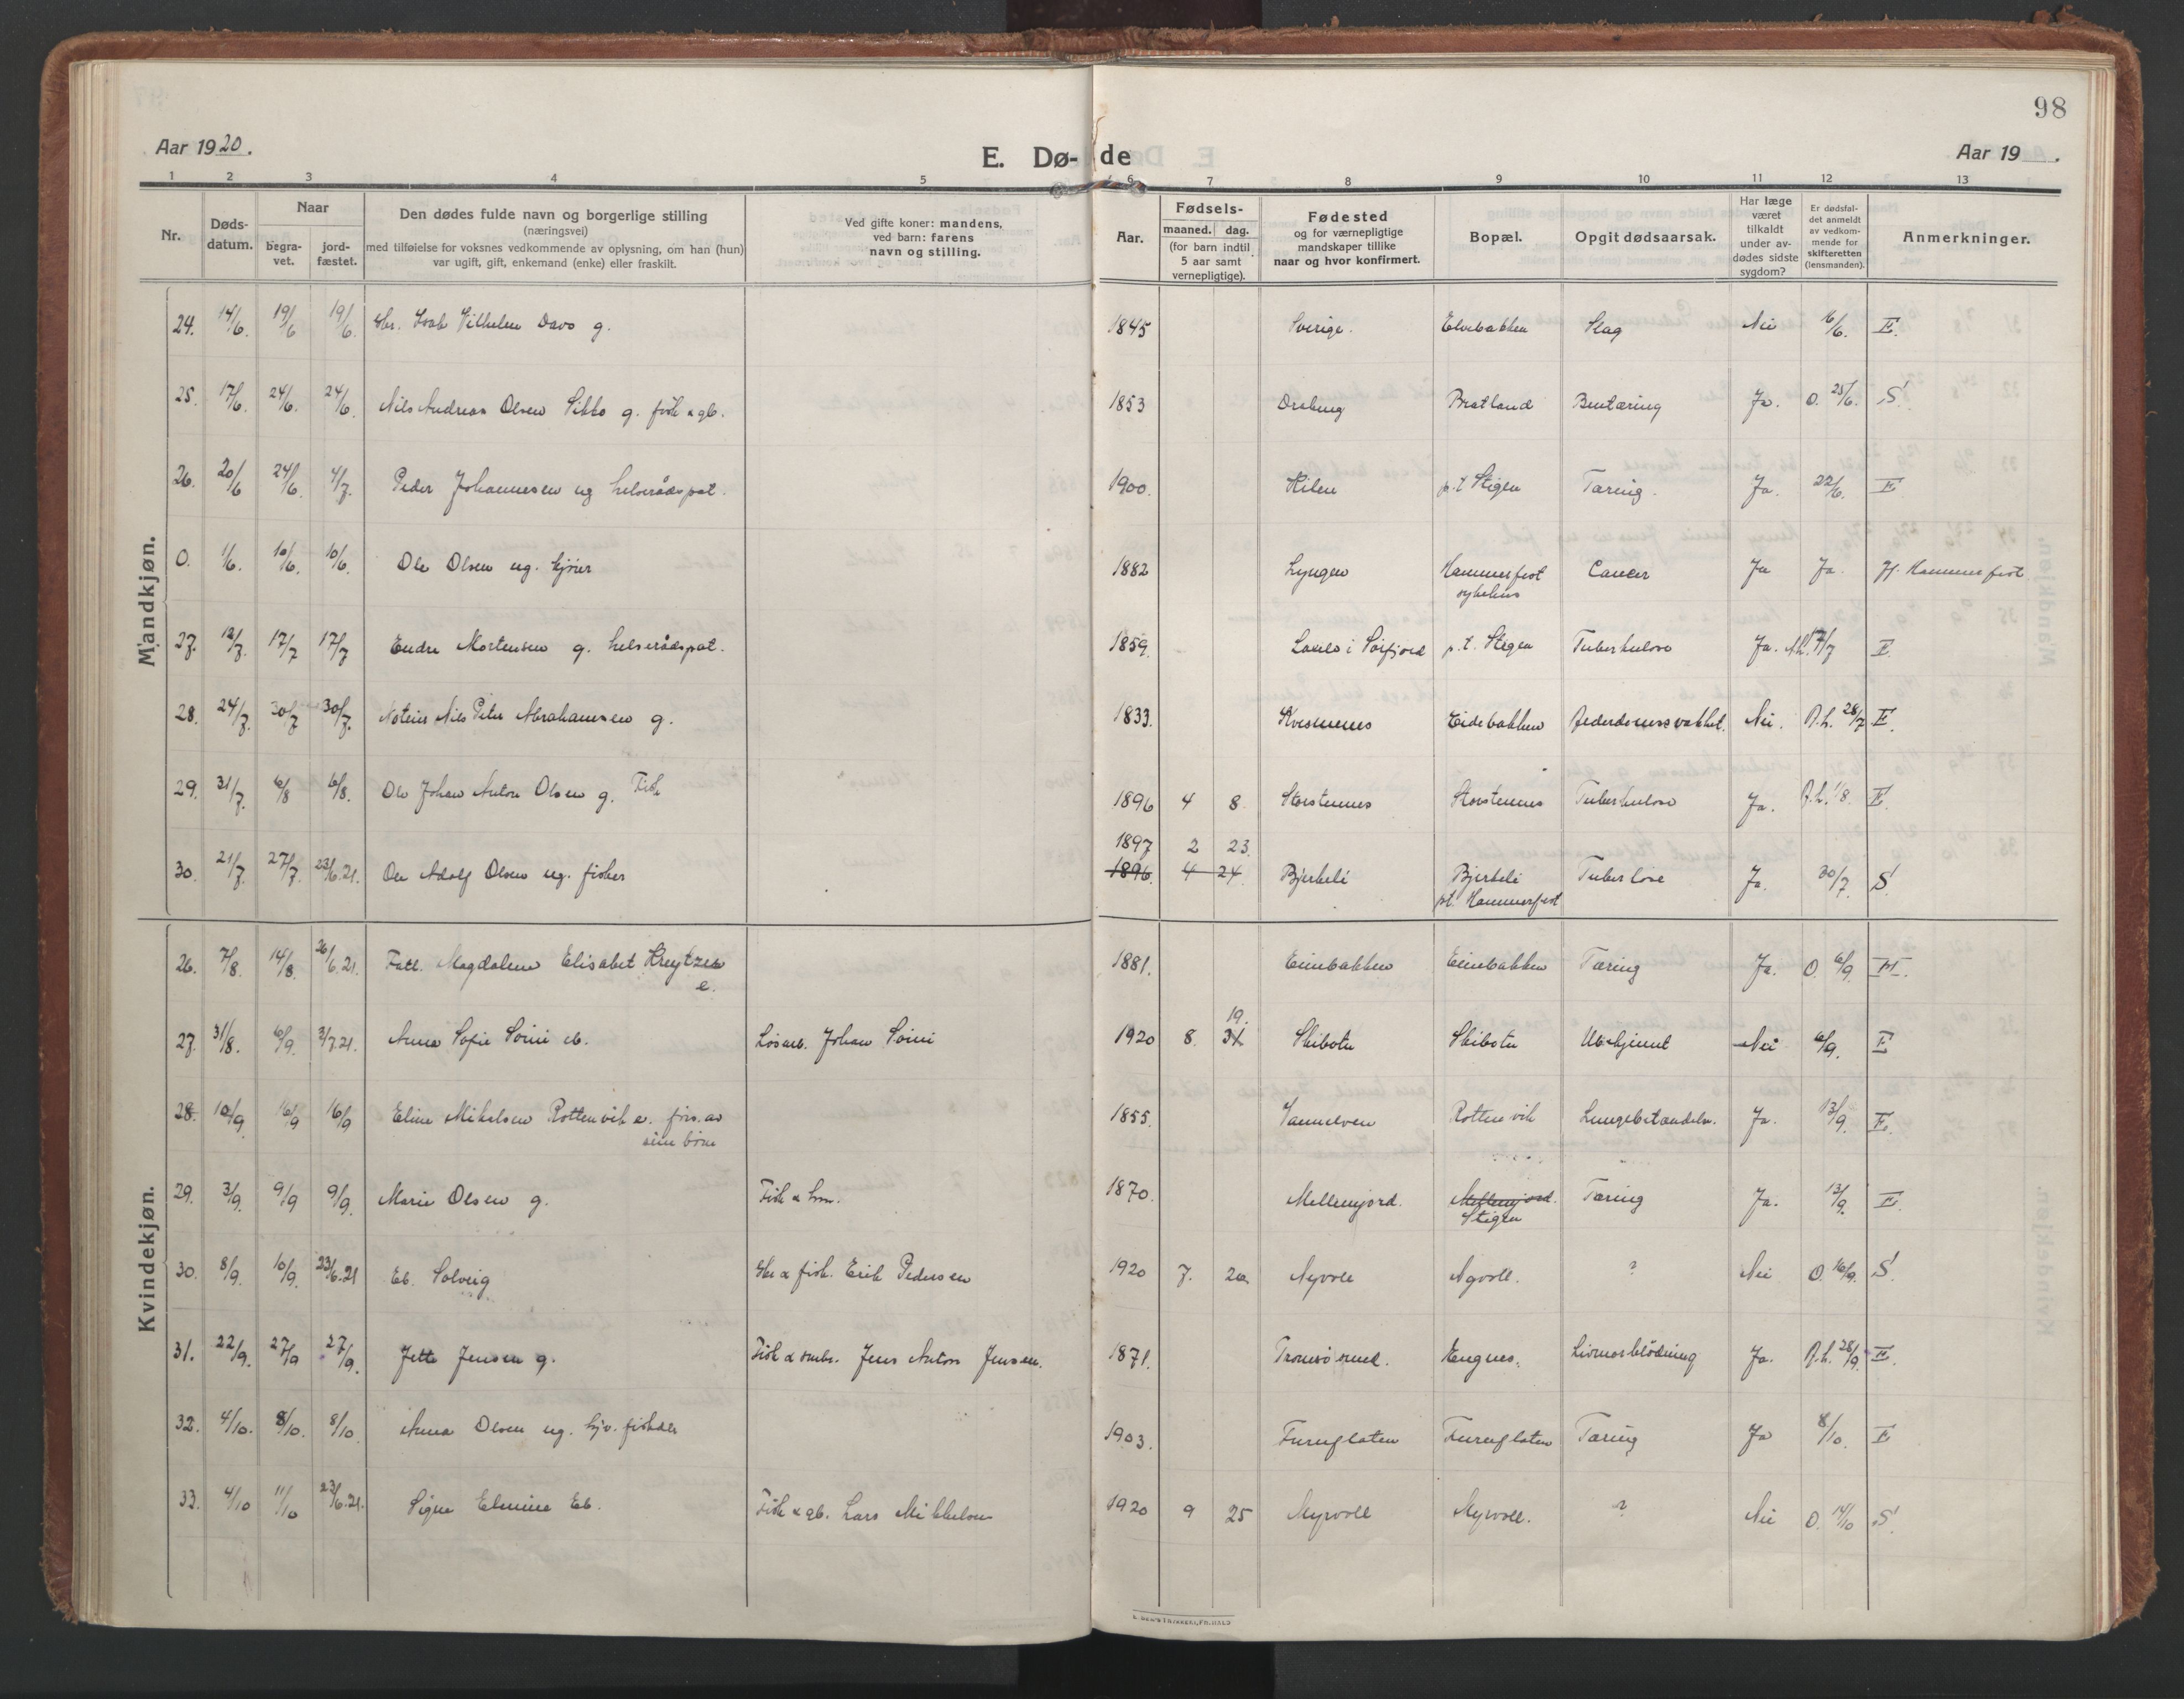 98
Aar 1920.
E. Dø-de
Aar 19 .
1 2 3 4 5 6 7 8 9 10 11 12 13
Nr.
Døds-
datum.
Naar
begra-
vet.
jord-
fæstet.
Den dødes fulde navn og borgerlige stilling
(næringsvei)
med tilføielse for voksnes vedkommende av oplysning, om han (hun)
var ugift, gift, enkemand (enke) eller fraskilt.
Ved gifte koner: mandens,
ved barn: farens
navn og stilling.
Aar.
Fødsels-
maaned. dag.
(for barn indtil
5 aar samt
vernepligtige).
Fødested
og for værnepligtige
mandskaper tillike
naar og hvor konfirmert.
Bopæl.
Opgit dødsaarsak.
Har læge
været
tilkaldt
under av-
dødes sidste
sygdom?
Er dødsfal-
det anmeldt
av vedkom-
mende for
skifteretten
(lensmanden).
Anmerkninger.
Mandkjøn.
24. 14/6. 19/6 19/6. Vilhelm Davo g. 1845 Sverige. Elvebakken Slag Nei 16/6. E.
25. 17/6. 24/6. 24/6. Nils Andreas Olsen Sikko g. fisk & gb. 1853 Bratland Ja. O. 25/6. S.
26. 20/6 24/6. 4/7. Peder Johannesen ug helserådspat. 1900. Kilen p.t Stigen Tæring. Ja. 22/6. E
0. 1/6. 10/6. 10/6. Ole Olsen ug. 1882 Lyngen Hammerfest Cancer Ja Ja. Hammerfest
sykehus
27. 12/7. 17/7 17/7 Endre Mortensen g. helserådspat. 1859. i Sørfjord p.t. Stigen Tuberkulose Ja. 17/7 E.
28. 24/7. 30/7 30/7. Nils Peter Abrahamsen g. 1833. Kvesmenes Eidebakken Nei. A.L. 28/7 E.
29. 31/7. 6/8 6/8. Ole Johan Anton Olsen g. Fisk 1896 4 8 Storstennes Storstennes Tuberkulose Ja. A.L. 1/8. E.
1897 2 23.
30. 21/7. 27/7. 23/6.21. Ole Adolf Olsen ug. fisker 1896. 4 24. Bjerkeli Bjerkeli Tuberlose Ja. 30/7. S
pt. Hammerfest
Kvindekjøn.
26. 7/8. 14/8. 26/6.21. Fatt. Magdalene Elisabet Kreytzer 1881. Tæring Ja. O. 6/9.
e.
19.
27. 31/8. 6/9. 3/7.21. Anna Sofie eb. Løsarb. Johan 1920 8. 31 Skibotn Skibotn Ubekjennt Nei 6/9. E
28. 10/9. 16/9 16/9 Eline Mikelsen Rottenvik e. fors. av 1855. Rottenvik Lungebetændelse. Ja. 13/9. E.
sine børn
29. 3/9. 9/9 9/9. Marie Olsen g. 1870. Mellemjord. Mellemjord. Tæring Ja. 13/9. E.
Stigen
30. 8/9. 10/9. 23/6.21 Eb. Solveig Gbr & fisk. Erik Pedersen 1920 7. 20. Nyvoll Nyvoll. ? Nei O. 16/9. S
31. 22/9. 27/9 27/9. Jette Jensen g. Fisk & snekr. Jens Anton Jensen. 1871. Tromsøsund. Kengnes. Livmorblødning Ja. A.L. 28/9. E.
32. 4/10. 8/10. 8/10 Anna Olsen ug. fiskdtr 1903. Furuflaten Furuflaten Tæring Ja 8/10. E
33. 4/10 11/10 23/6.21. Signe Elmine Eb. Fisk & gb. Lars Mikkelsen 1920 9 25 Myrvoll Myrvoll. ? Nei O. 14/10 S.